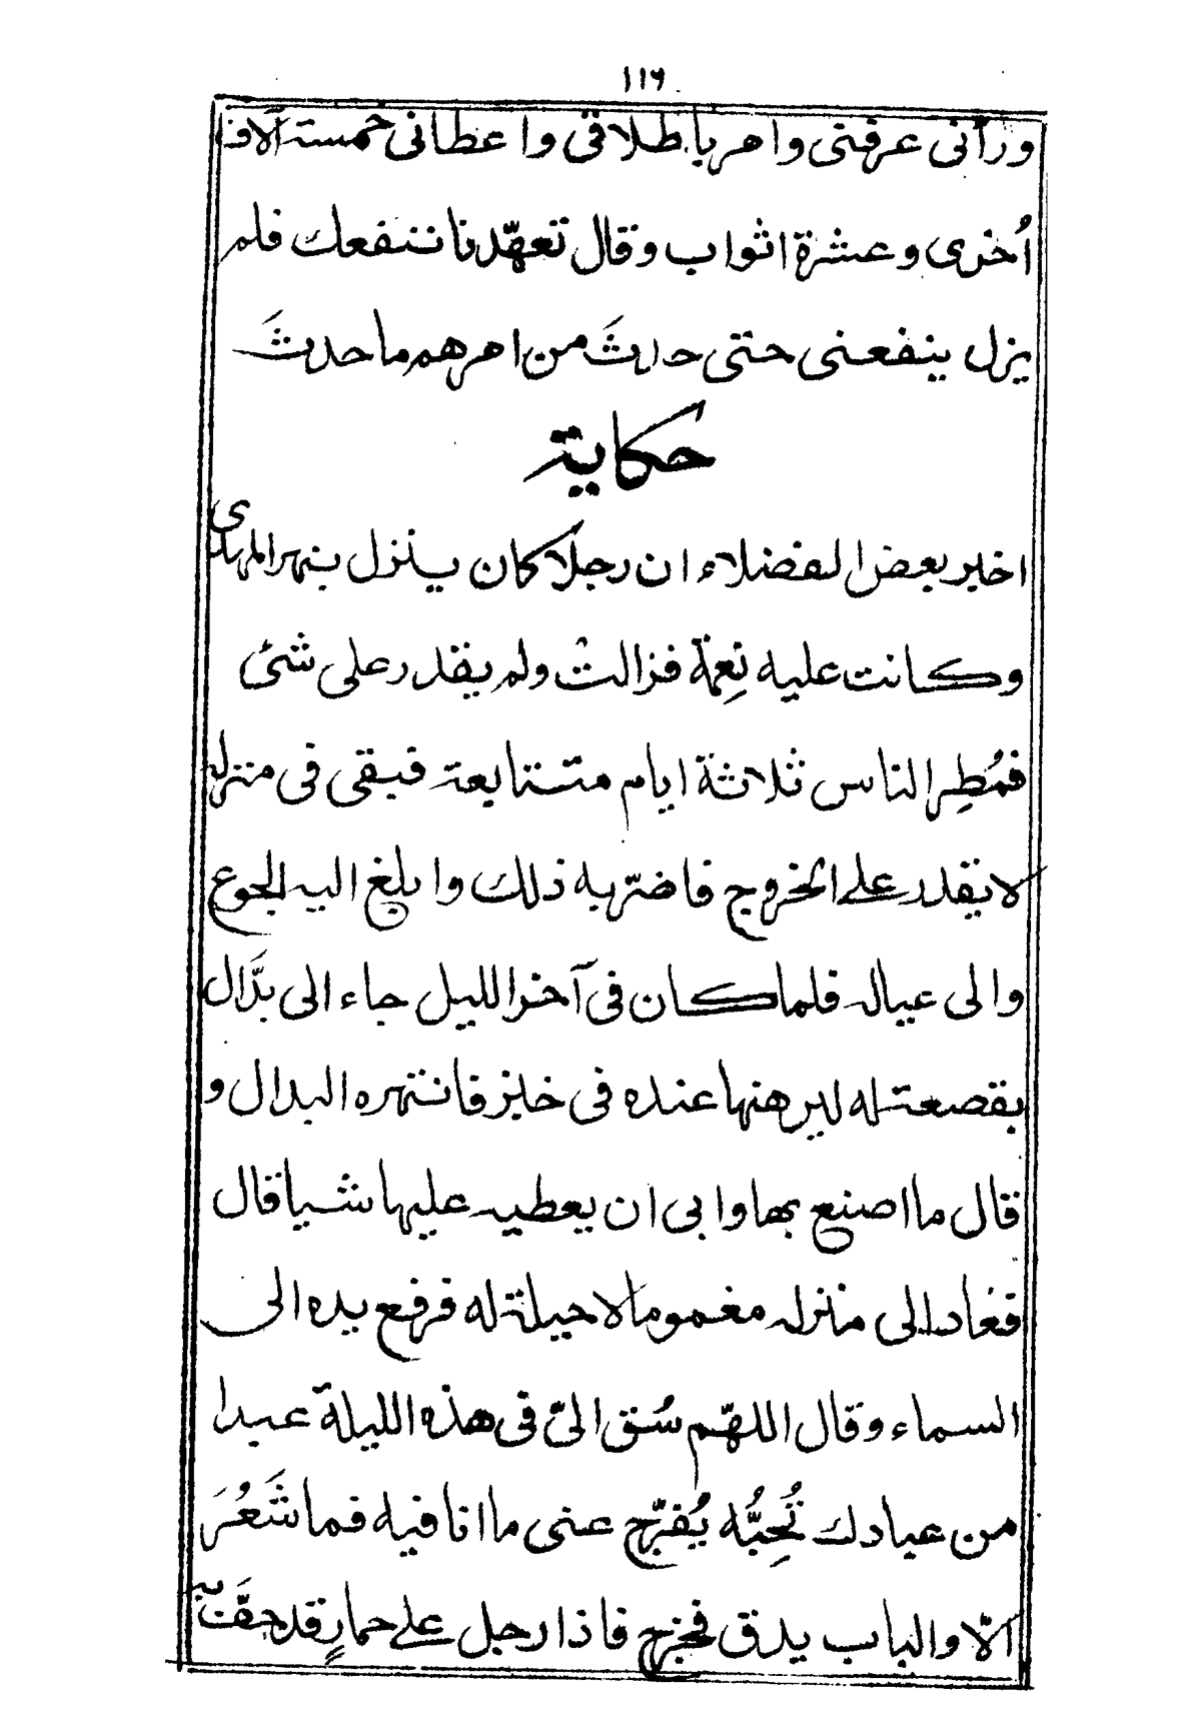 ١١٦
ورآنى عرفنى وامر باطلاقى واعطانى خمسة آلاف
اُخرى وعشرة اثواب وقال تعهّدنا ننفعك فلم
يزل ينفعنى حتى حدثَ من امرهم ما حدثَ
حكاية
اخبر بعض الفضلاء ان رجلا كان ينزل بنهر المهدى
وكانت عليه نِعمة فزالتْ ولم يقدر على شئ
فمُطِر الناس ثلاثة ايام متتابعة فبقى فى منزله
لا يقدر على الخروج فاضرّ به ذلك وابلغ اليه الجوع
والى عياله فلما كان فى آخر الليل جاء الى بدَّال
بقصعة له ليرهنها عنده فى خبز فانتهره البدال و
قال ما اصنع بها وابى ان يعطيه عليها شيا قال
فعاد الى منزله مغموما لا حيلة له فرفع يده الى
السماء وقال اللهمّ سُق الىّ فى هذه الليلة عبدا
من عبادك تُحِبُّه يُفرّج عنى ما انا فيه فما شَعُرَ
الّا والباب يدق فخرج فاذا رجل على حمارٍ قد حفّت به